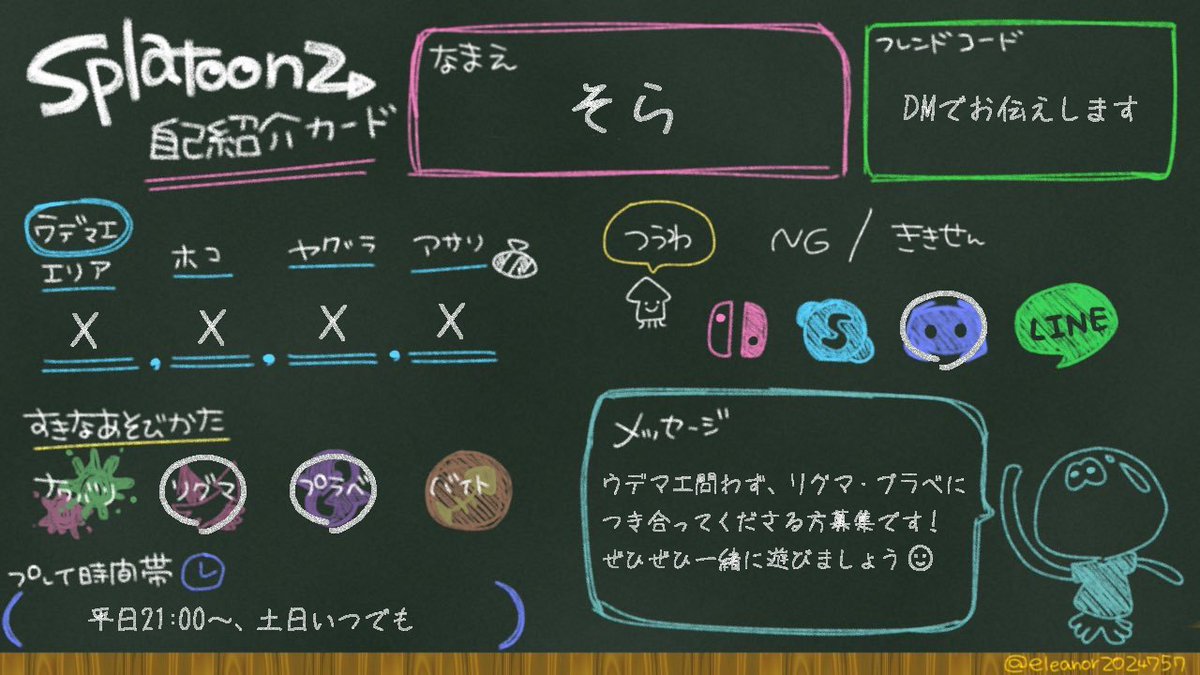 Splatoon2
自己紹介カード
なまえ
そら
フレンドコード
DMでお伝えします
ウデマエ
エリア
ホコ
ヤグラ
アサリ
X , X , X , X
つうわ
NG / ききせん
S
LINE
すきなあそびかた
ナワバリ
リグマ
プラベ
バイト
プレイ時間帯
( 平日21:00〜、土日いつでも )
メッセージ
ウデマエ問わず、リグマ・プラベに
つき合ってくださる方募集です!
ぜひぜひ一緒に遊びましょう☺
@eleanor2024757